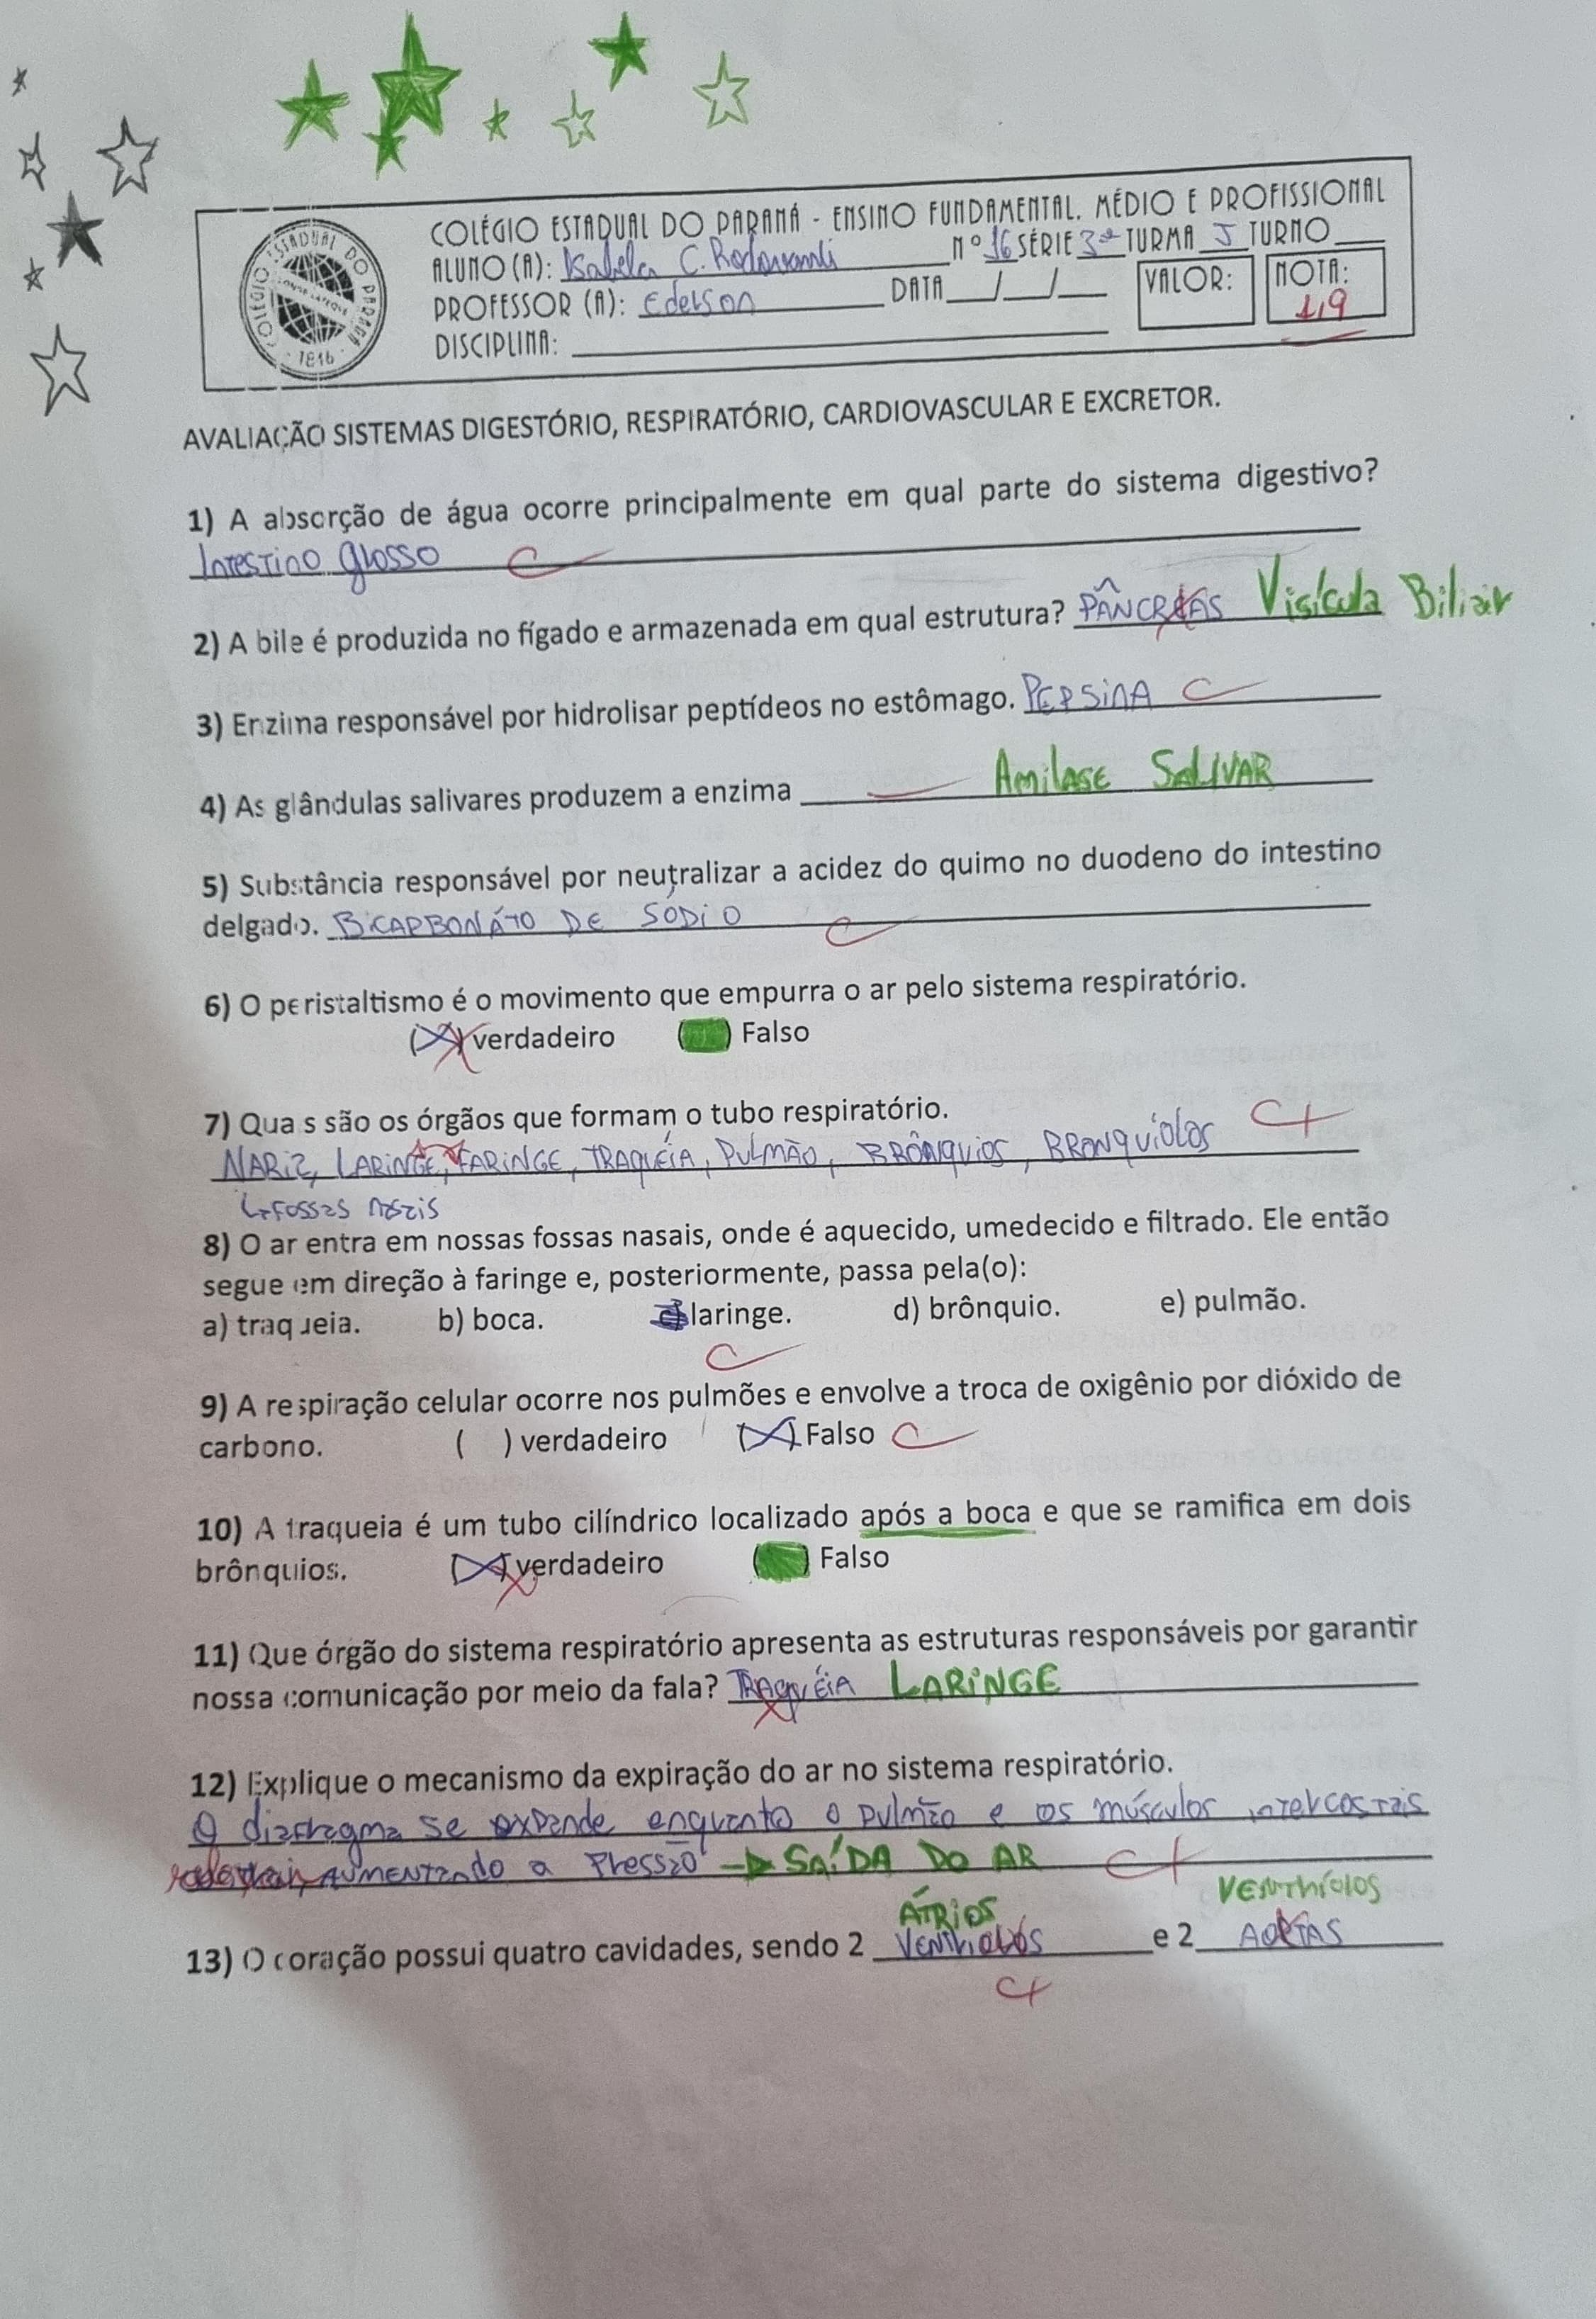 COLÉGIO ESTADUAL DO PARANÁ - ENSINO FUNDAMENTAL, MÉDIO E PROFISSIONAL
ALUNO(A): Isabela C. Nº 16 SÉRIE 3ª TURMA J TURNO
PROFESSOR (A): Ederson DATA / / VALOR: NOTA:
1,9
DISCIPLINA:
COLÉGIO ESTADUAL DO PARANÁ
1846
AVALIAÇÃO SISTEMAS DIGESTÓRIO, RESPIRATÓRIO, CARDIOVASCULAR E EXCRETOR.
1) A absorção de água ocorre principalmente em qual parte do sistema digestivo?
Intestino glosso C
2) A bile é produzida no fígado e armazenada em qual estrutura? PÂNCREAS Visícula Biliar
3) Enzima responsável por hidrolisar peptídeos no estômago. PEPSINA C
4) As glândulas salivares produzem a enzima Amilase SALIVAR
5) Substância responsável por neutralizar a acidez do quimo no duodeno do intestino
delgado. BICARBONÁTO DE SÓDIO C
6) O peristaltismo é o movimento que empurra o ar pelo sistema respiratório.
(X) verdadeiro ( ) Falso
7) Quais são os órgãos que formam o tubo respiratório.
NARIZ, LARINGE, FARINGE, TRAQUÉIA, PULMÃO, BRÔNQUIOS, BRONQUÍOLOS C+
↳ FOSSAS NASAIS
8) O ar entra em nossas fossas nasais, onde é aquecido, umedecido e filtrado. Ele então
segue em direção à faringe e, posteriormente, passa pela(o):
a) traqueia. b) boca. c) laringe. d) brônquio. e) pulmão.
C
9) A respiração celular ocorre nos pulmões e envolve a troca de oxigênio por dióxido de
carbono. ( ) verdadeiro (X) Falso C
10) A traqueia é um tubo cilíndrico localizado após a boca e que se ramifica em dois
brônquios. (X) verdadeiro ( ) Falso
11) Que órgão do sistema respiratório apresenta as estruturas responsáveis por garantir
nossa comunicação por meio da fala? TRAQUÉIA LARINGE
12) Explique o mecanismo da expiração do ar no sistema respiratório.
O diafragma se expande enquanto o pulmão e os músculos intercostais
AUMENTANDO a Pressão → SAÍDA DO AR C+
ÁTRIOS VENTRÍOLOS
13) O coração possui quatro cavidades, sendo 2 VENTRIOLOS e 2 AORTAS
C+